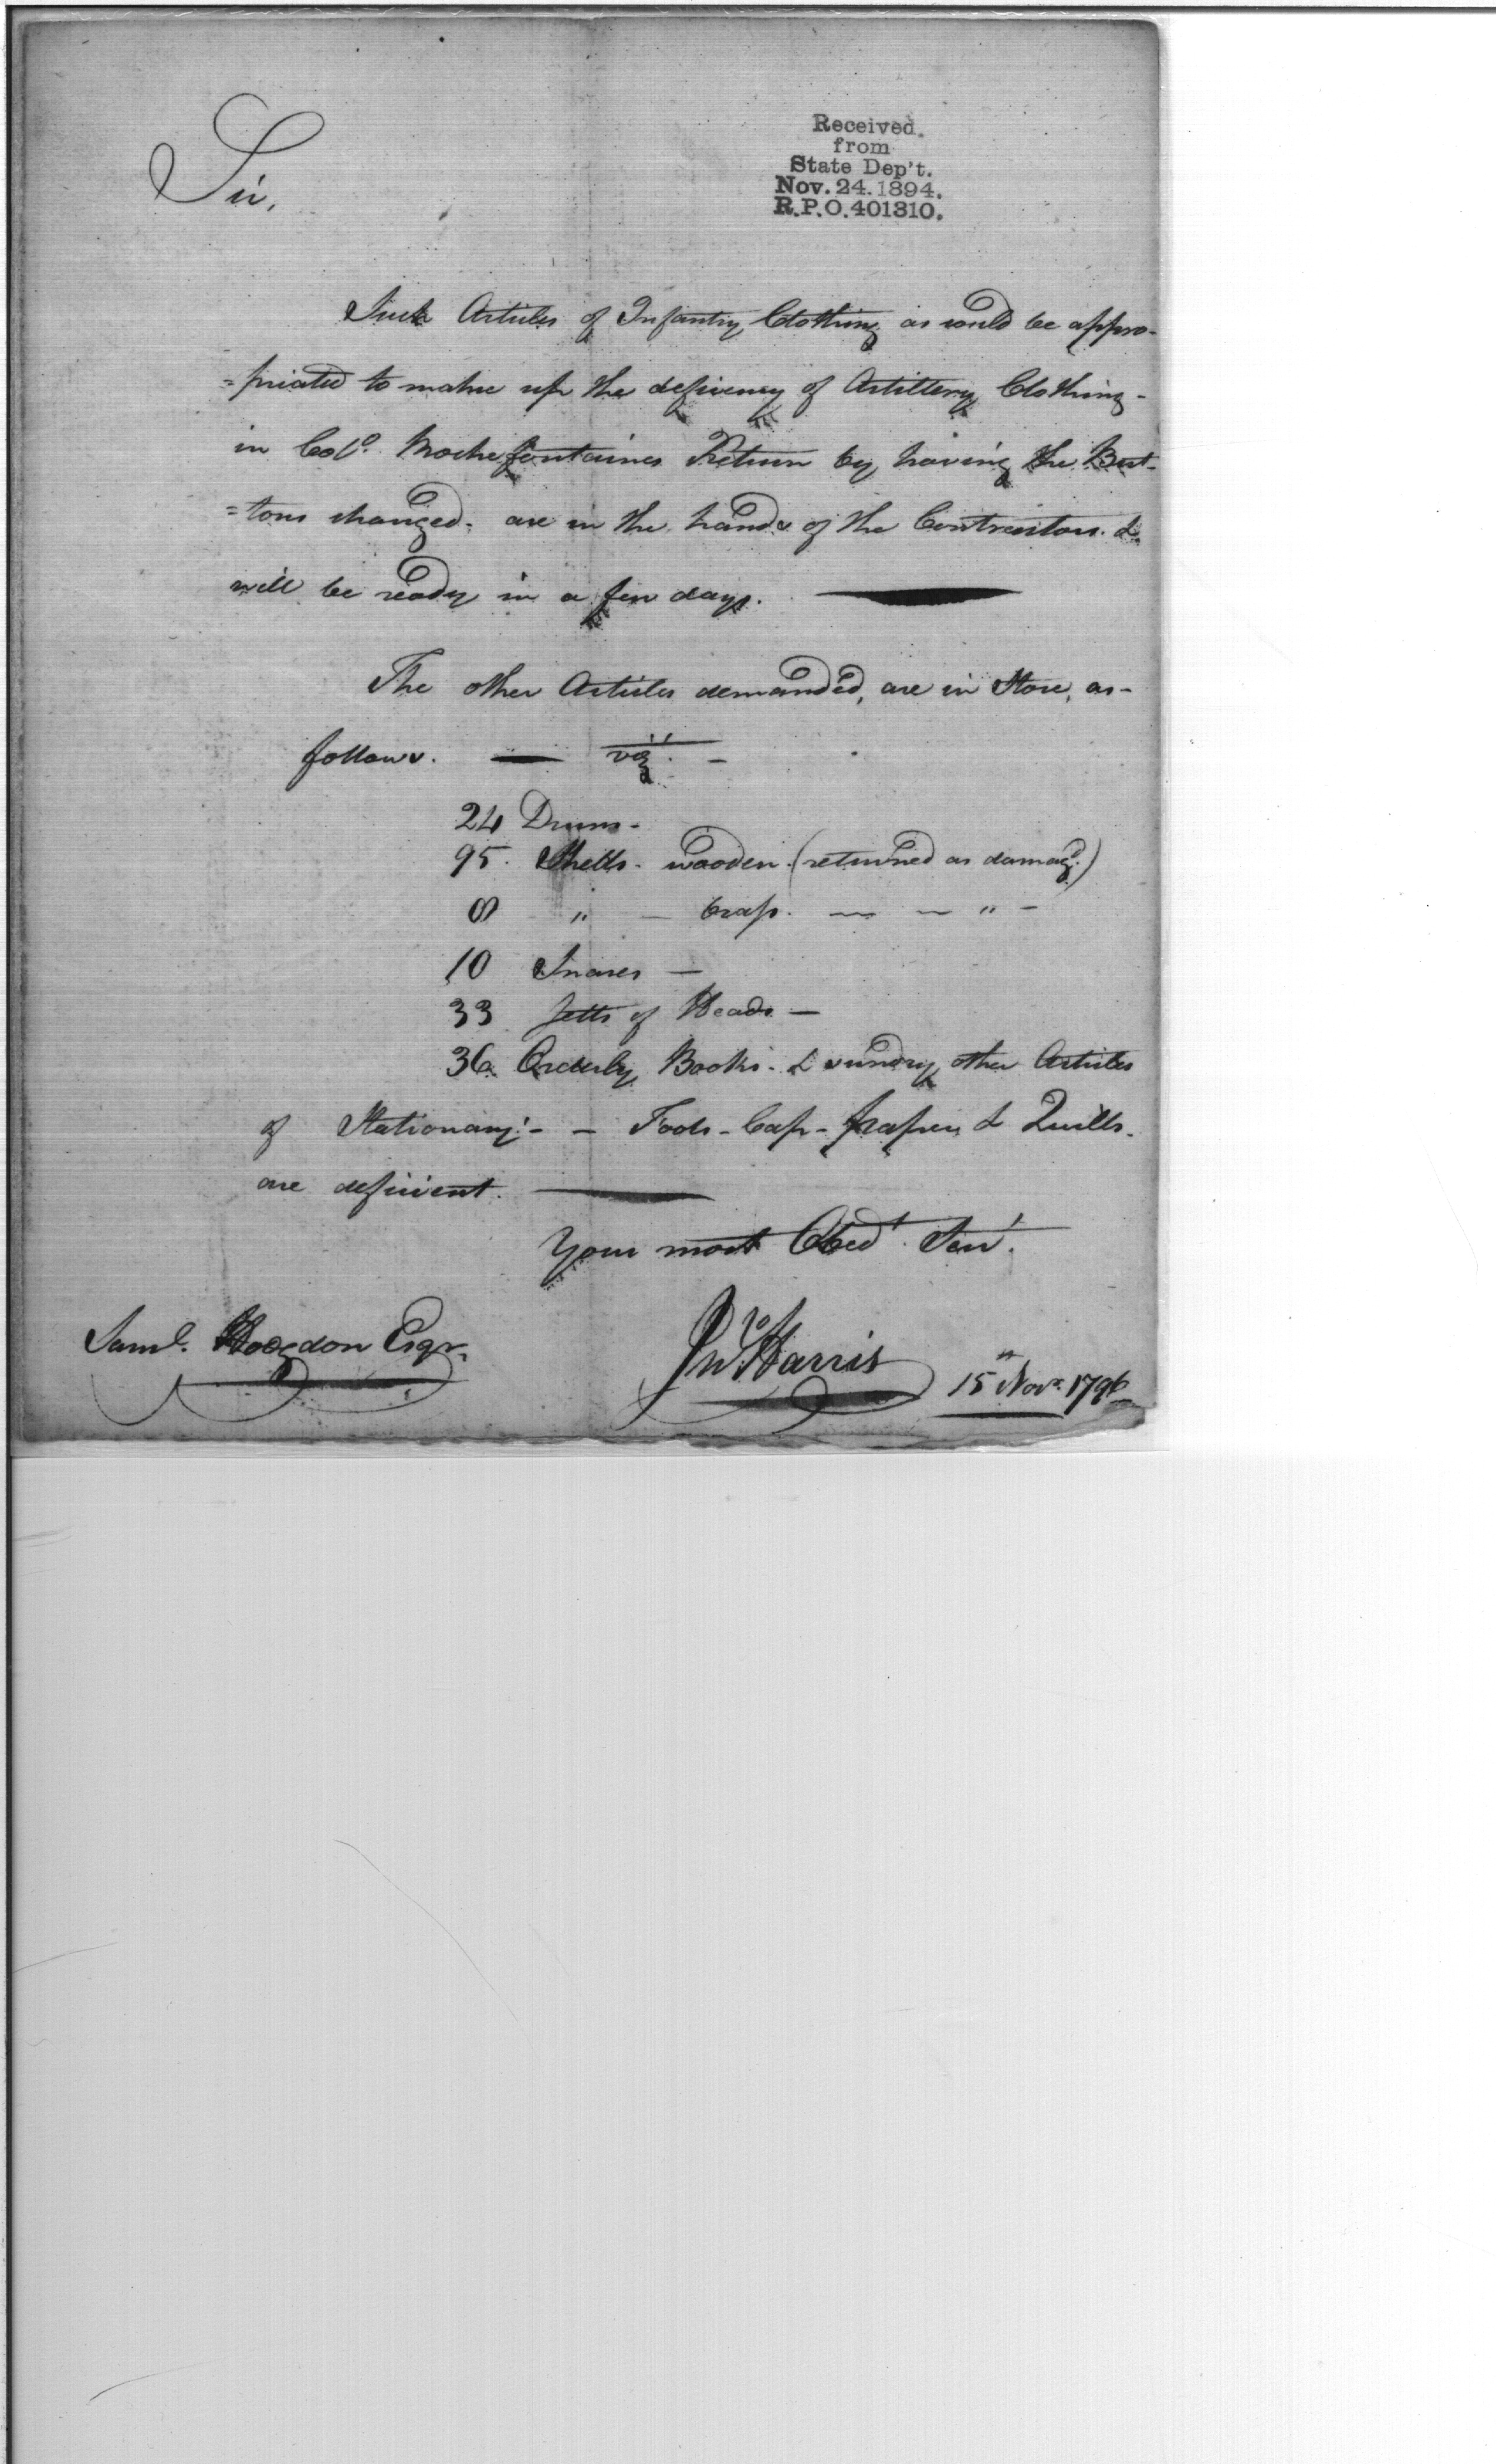 Sir,
Received
from
State Dep't.
Nov. 24. 1894.
R.P.O. 401310.
Such Articles of Infantry Clothing as could be appro-
=priated to make up the defiency of Artillery Clothing -
in Colo. Rochefontaines Return by having the But-
=tons changed. are in the hands of the Contractors. &
will be ready in a few days.
The other Articles demanded, are in Store, as -
follows. — viz. -
24 Drums -
95. Shells - wooden. (returned as damagd.)
8 " — brass. — — " -
10 Snares —
33 Setts of Heads —
36 Orderly Books - & sundry other Articles
of Stationary: - - Fools-Cap-paper & Quills.
are deficient.
Your most Obedt. Servt.
Saml. Hodgdon Esqr.
Jno. Harris
15th Novr. 1796